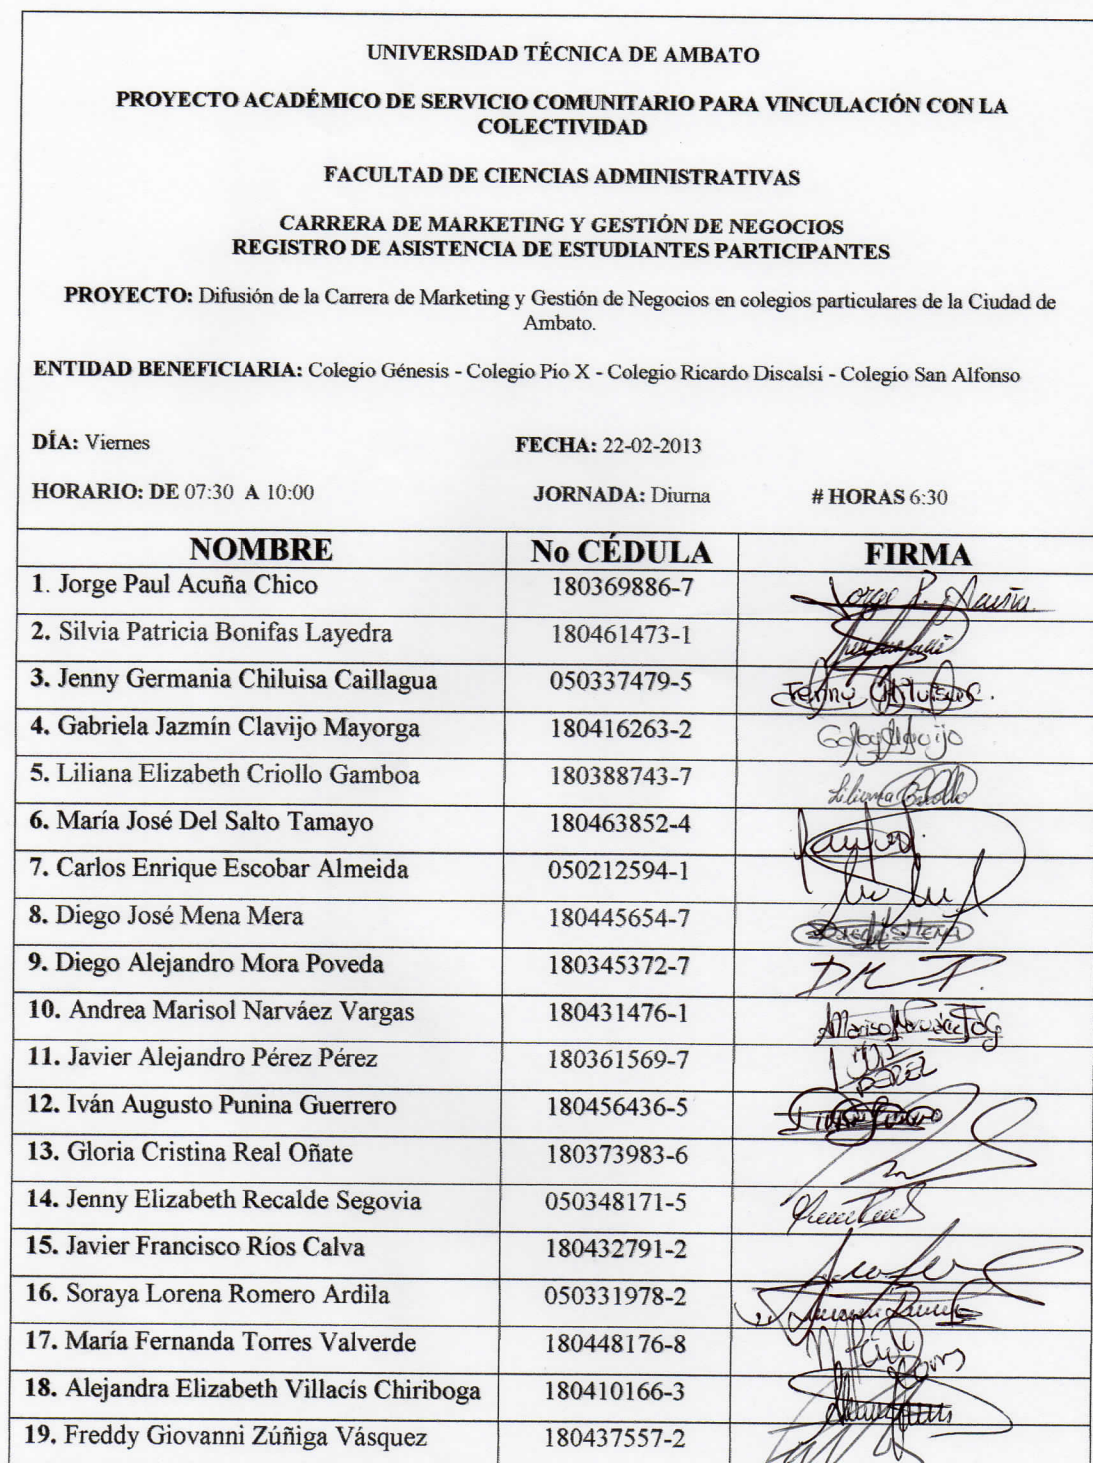 UNIVERSIDAD TÉCNICA DE AMBATO
PROYECTO ACADÉMICO DE SERVICIO COMUNITARIO PARA VINCULACIÓN CON LA
COLECTIVIDAD
FACULTAD DE CIENCIAS ADMINISTRATIVAS
CARRERA DE MARKETING Y GESTIÓN DE NEGOCIOS
REGISTRO DE ASISTENCIA DE ESTUDIANTES PARTICIPANTES
PROYECTO: Difusión de la Carrera de Marketing y Gestión de Negocios en colegios particulares de la Ciudad de
Ambato.
ENTIDAD BENEFICIARIA: Colegio Génesis - Colegio Pio X - Colegio Ricardo Discalsi - Colegio San Alfonso
DÍA: Viernes FECHA: 22-02-2013
HORARIO: DE 07:30 A 10:00 JORNADA: Diurna # HORAS 6:30
NOMBRE No CÉDULA FIRMA
1. Jorge Paul Acuña Chico 180369886-7 Jorge P. Acuña.
2. Silvia Patricia Bonifas Layedra 180461473-1
3. Jenny Germania Chiluisa Caillagua 050337479-5 Jenny Chiluisa.
4. Gabriela Jazmín Clavijo Mayorga 180416263-2
5. Liliana Elizabeth Criollo Gamboa 180388743-7 Liliana Criollo
6. María José Del Salto Tamayo 180463852-4
7. Carlos Enrique Escobar Almeida 050212594-1
8. Diego José Mena Mera 180445654-7 Diego Mena
9. Diego Alejandro Mora Poveda 180345372-7
10. Andrea Marisol Narváez Vargas 180431476-1
11. Javier Alejandro Pérez Pérez 180361569-7
12. Iván Augusto Punina Guerrero 180456436-5
13. Gloria Cristina Real Oñate 180373983-6
14. Jenny Elizabeth Recalde Segovia 050348171-5
15. Javier Francisco Ríos Calva 180432791-2
16. Soraya Lorena Romero Ardila 050331978-2
17. María Fernanda Torres Valverde 180448176-8
18. Alejandra Elizabeth Villacís Chiriboga 180410166-3
19. Freddy Giovanni Zúñiga Vásquez 180437557-2